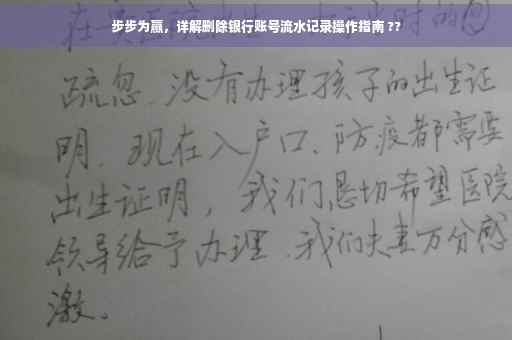 步步为赢，详解删除银行账号流水记录操作指南 ??
在
疏忽、没有办理孩子的出生证
明、现在入户口、防疫都需要
出生证明，我们恳切希望医院
领导给予办理、我们夫妻万分感
激。